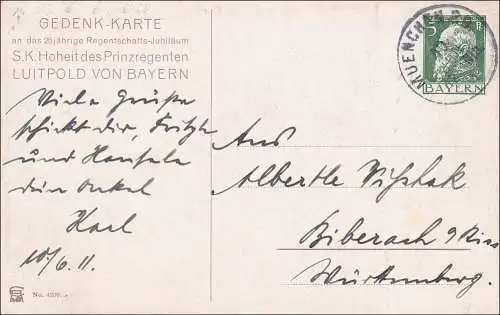 GEDENK-KARTE
an das 25jährige Regentschafts-Jubiläum
S.K. Hoheit des Prinzregenten
LUITPOLD VON BAYERN
Viele Grüße
schickt dir, Fritzle
und Hansele
dein Onkel
Karl
10/6. 11.
No. 4200.
MUENCHEN
5 Pf.
BAYERN
Albertle
Biberach a/Riss
Württemberg.